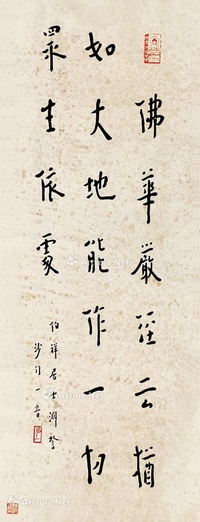 佛華嚴經云猶
如大地能作一切
眾生依處
伯祥居士
沙門一音